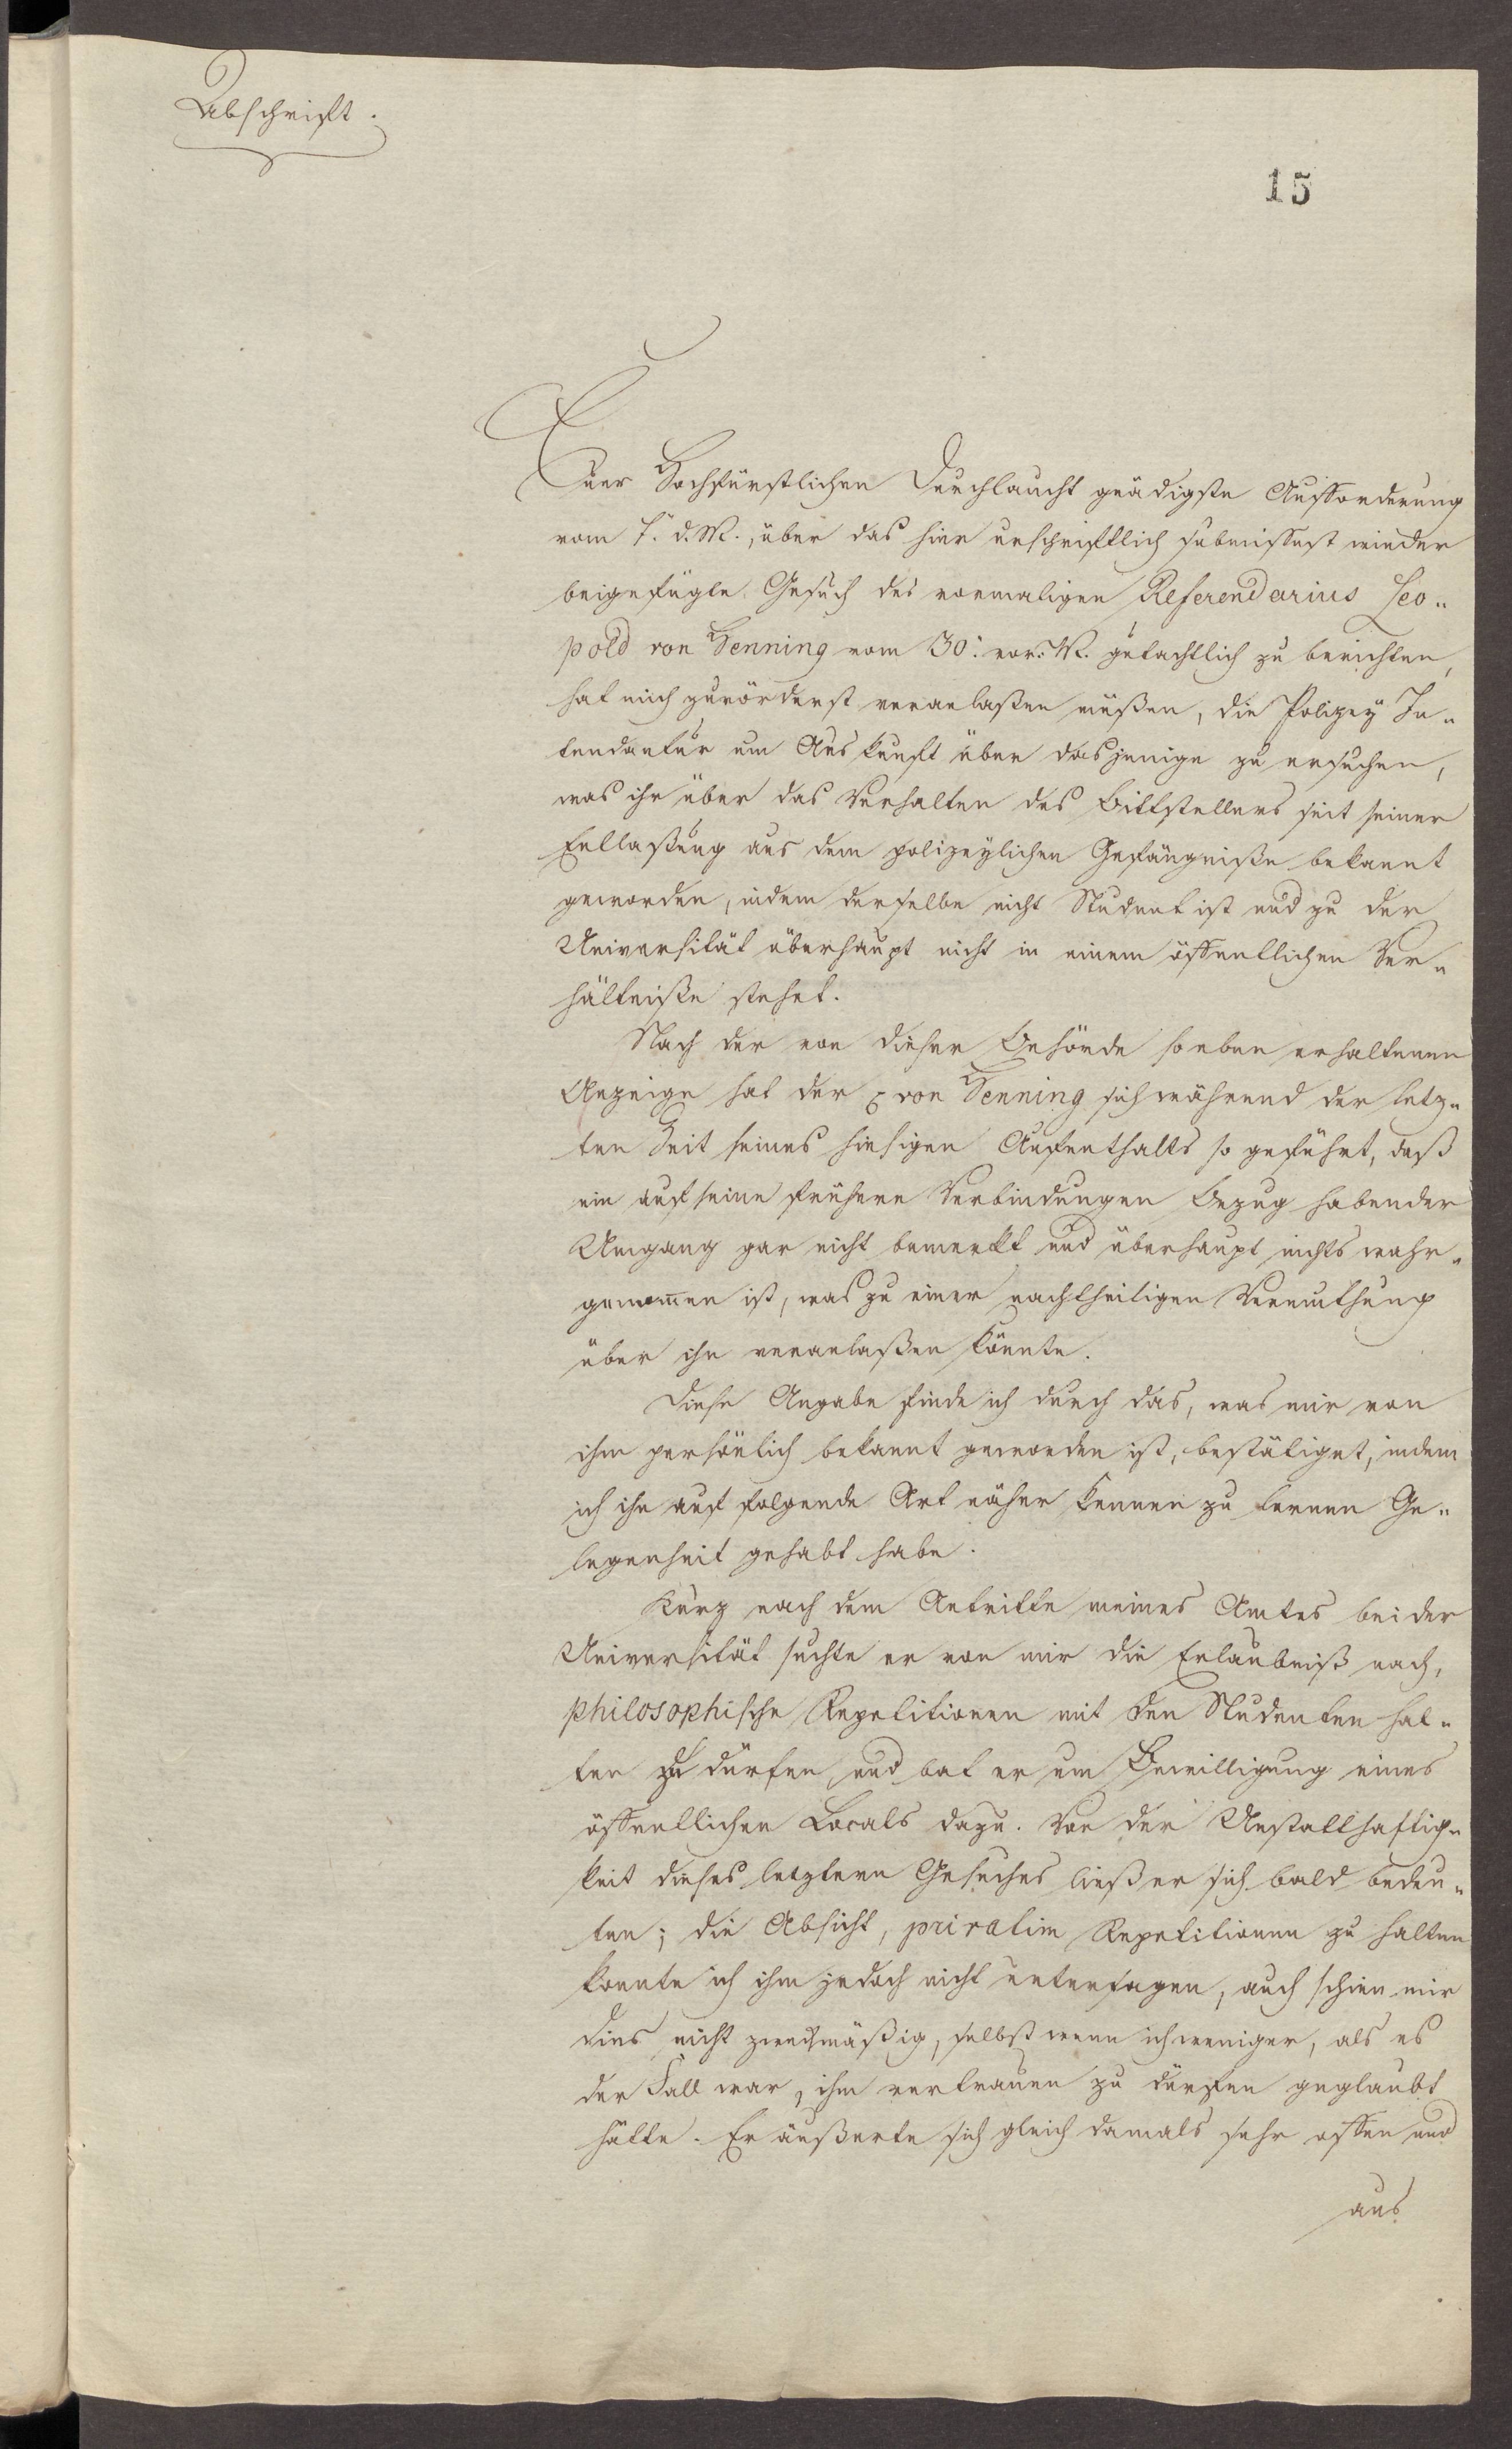 Abschrift.
15
Euer Hochfürstlichen Durchlaucht gnädigste Aufforderung
vom d. M., über das hier urschriftlich submissest wieder
beigefügte Gesuch des vormaligen Referendarius Leo„
pold von Henning vom 30. vor. M. gutachtlich zu berichten,
hat mich zuvörderst veranlaßen müßen, die Polizey In„
tendantur um Auskunft über dasjenige zu ersuchen,
was ihr über das Verhalten des Bittstellers seit seiner
Entlaßung aus dem polizeylichen Gefängniße bekannt
geworden, indem derselbe nicht Student ist und zu der
Universität überhaupt nicht in einem öffentlichen Ver„
hältniße stehet.
Nach der von dieser Behörde so eben erhaltenen
Anzeige hat der p von Henning sich während der letz„
ten Zeit seines hiesigen Aufenthalts so geführt, daß
ein auf seine frühere Verbindungen Bezug habender
Umgang gar nicht bemerkt und überhaupt nichts wahr„
genom̄en ist, was zu einer nachtheiligen Vermuthung
über ihn veranlaßen könnte.
Diese Angabe finde ich durch das, was mir von
ihm persönlich bekannt geworden ist, bestätiget, indem
ich ihn auf folgende Art näher kennen zu lernen Ge„
legenheit gehabt habe.
Kurz nach dem Antritte meines Amtes bei der
Universität suchte er von mir die Erlaubniß nach,
philosophische Repetitionen mit den Studenten hal„
ten zu dürfen und bat er um Bewilligung eines
öffentlichen Locals dazu. Von der Unstatthaftig„
keit dieses letztern Gesuches ließ er sich bald bedeu„
ten; die Absicht, privatim Repetitionen zu halten
konnte ich ihm jedoch nicht untersagen, auch schien mir
dies nicht zweckmäßig, selbst wenn ich weniger, als es
der Fall war, ihm vertrauen zu dürfen geglaubt
hätte. Er äußerte sich gleich damals sehr offen und
aus